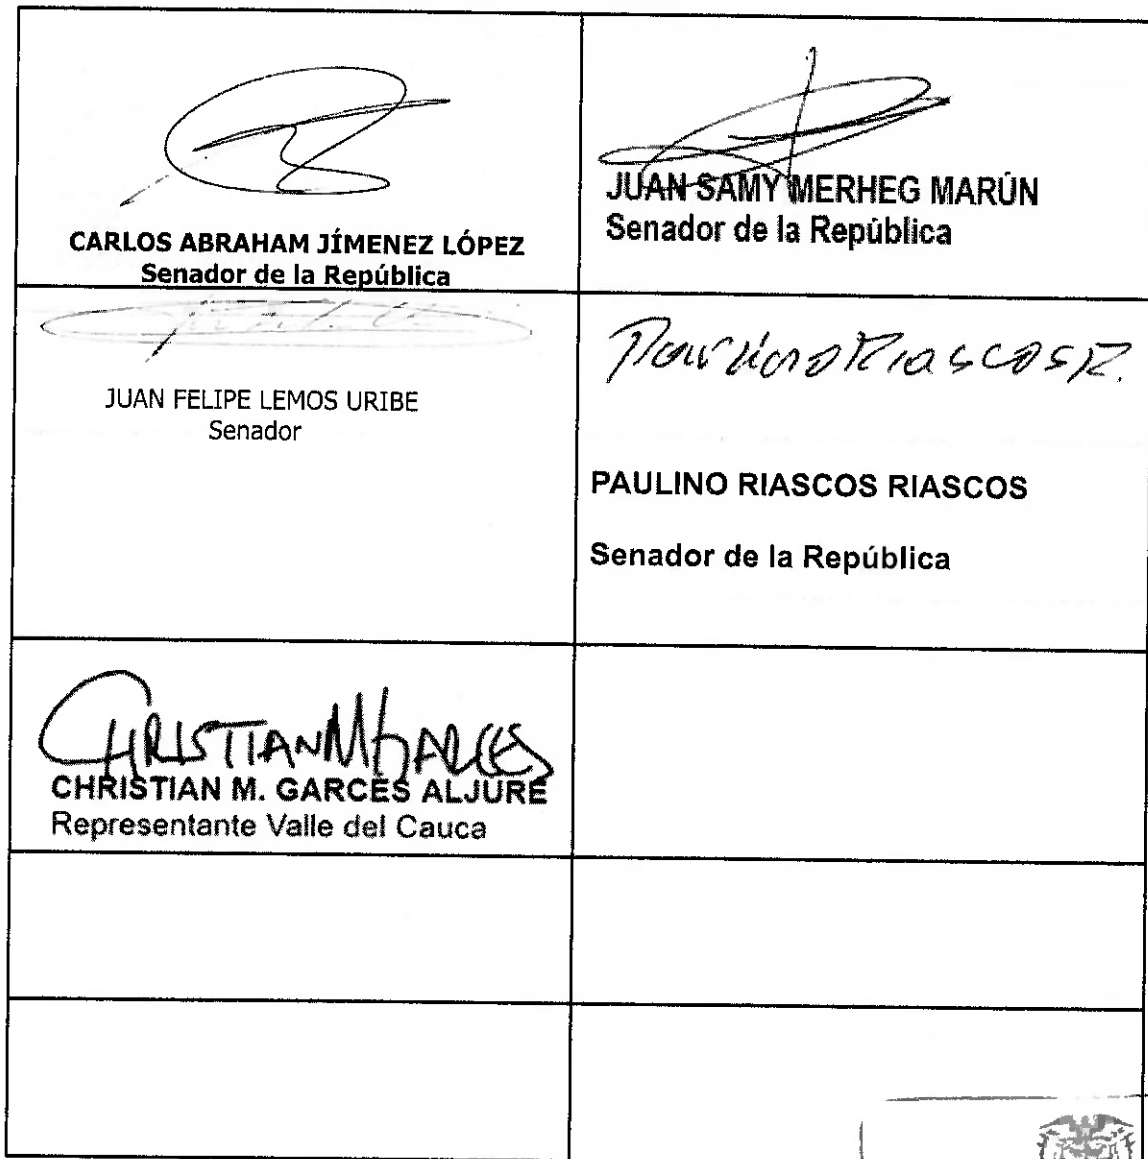 CARLOS ABRAHAM JÍMENEZ LÓPEZ
Senador de la República
JUAN SAMY MERHEG MARÚN
Senador de la República
JUAN FELIPE LEMOS URIBE
Senador
Paulino Riascos R.
PAULINO RIASCOS RIASCOS
Senador de la República
CHRISTIAN M GARCES
CHRISTIAN M. GARCÉS ALJURE
Representante Valle del Cauca